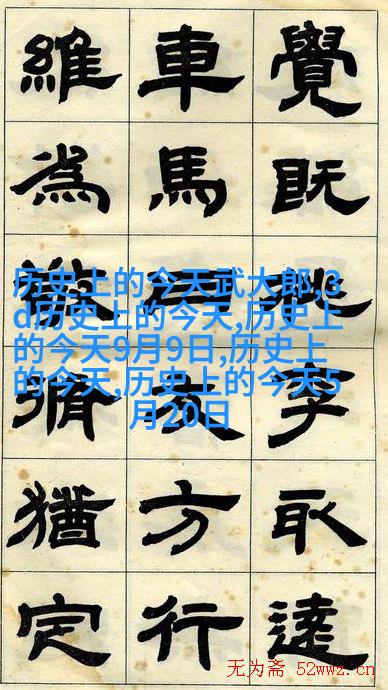 覺既李取遠
車馬友方行
維為脩猶定
历史上的今天武大郎,3
d历史上的今天,历史上
的今天9月9日,历史上
的今天,历史上的今天5
月20日
无为斋 52wwz.cn